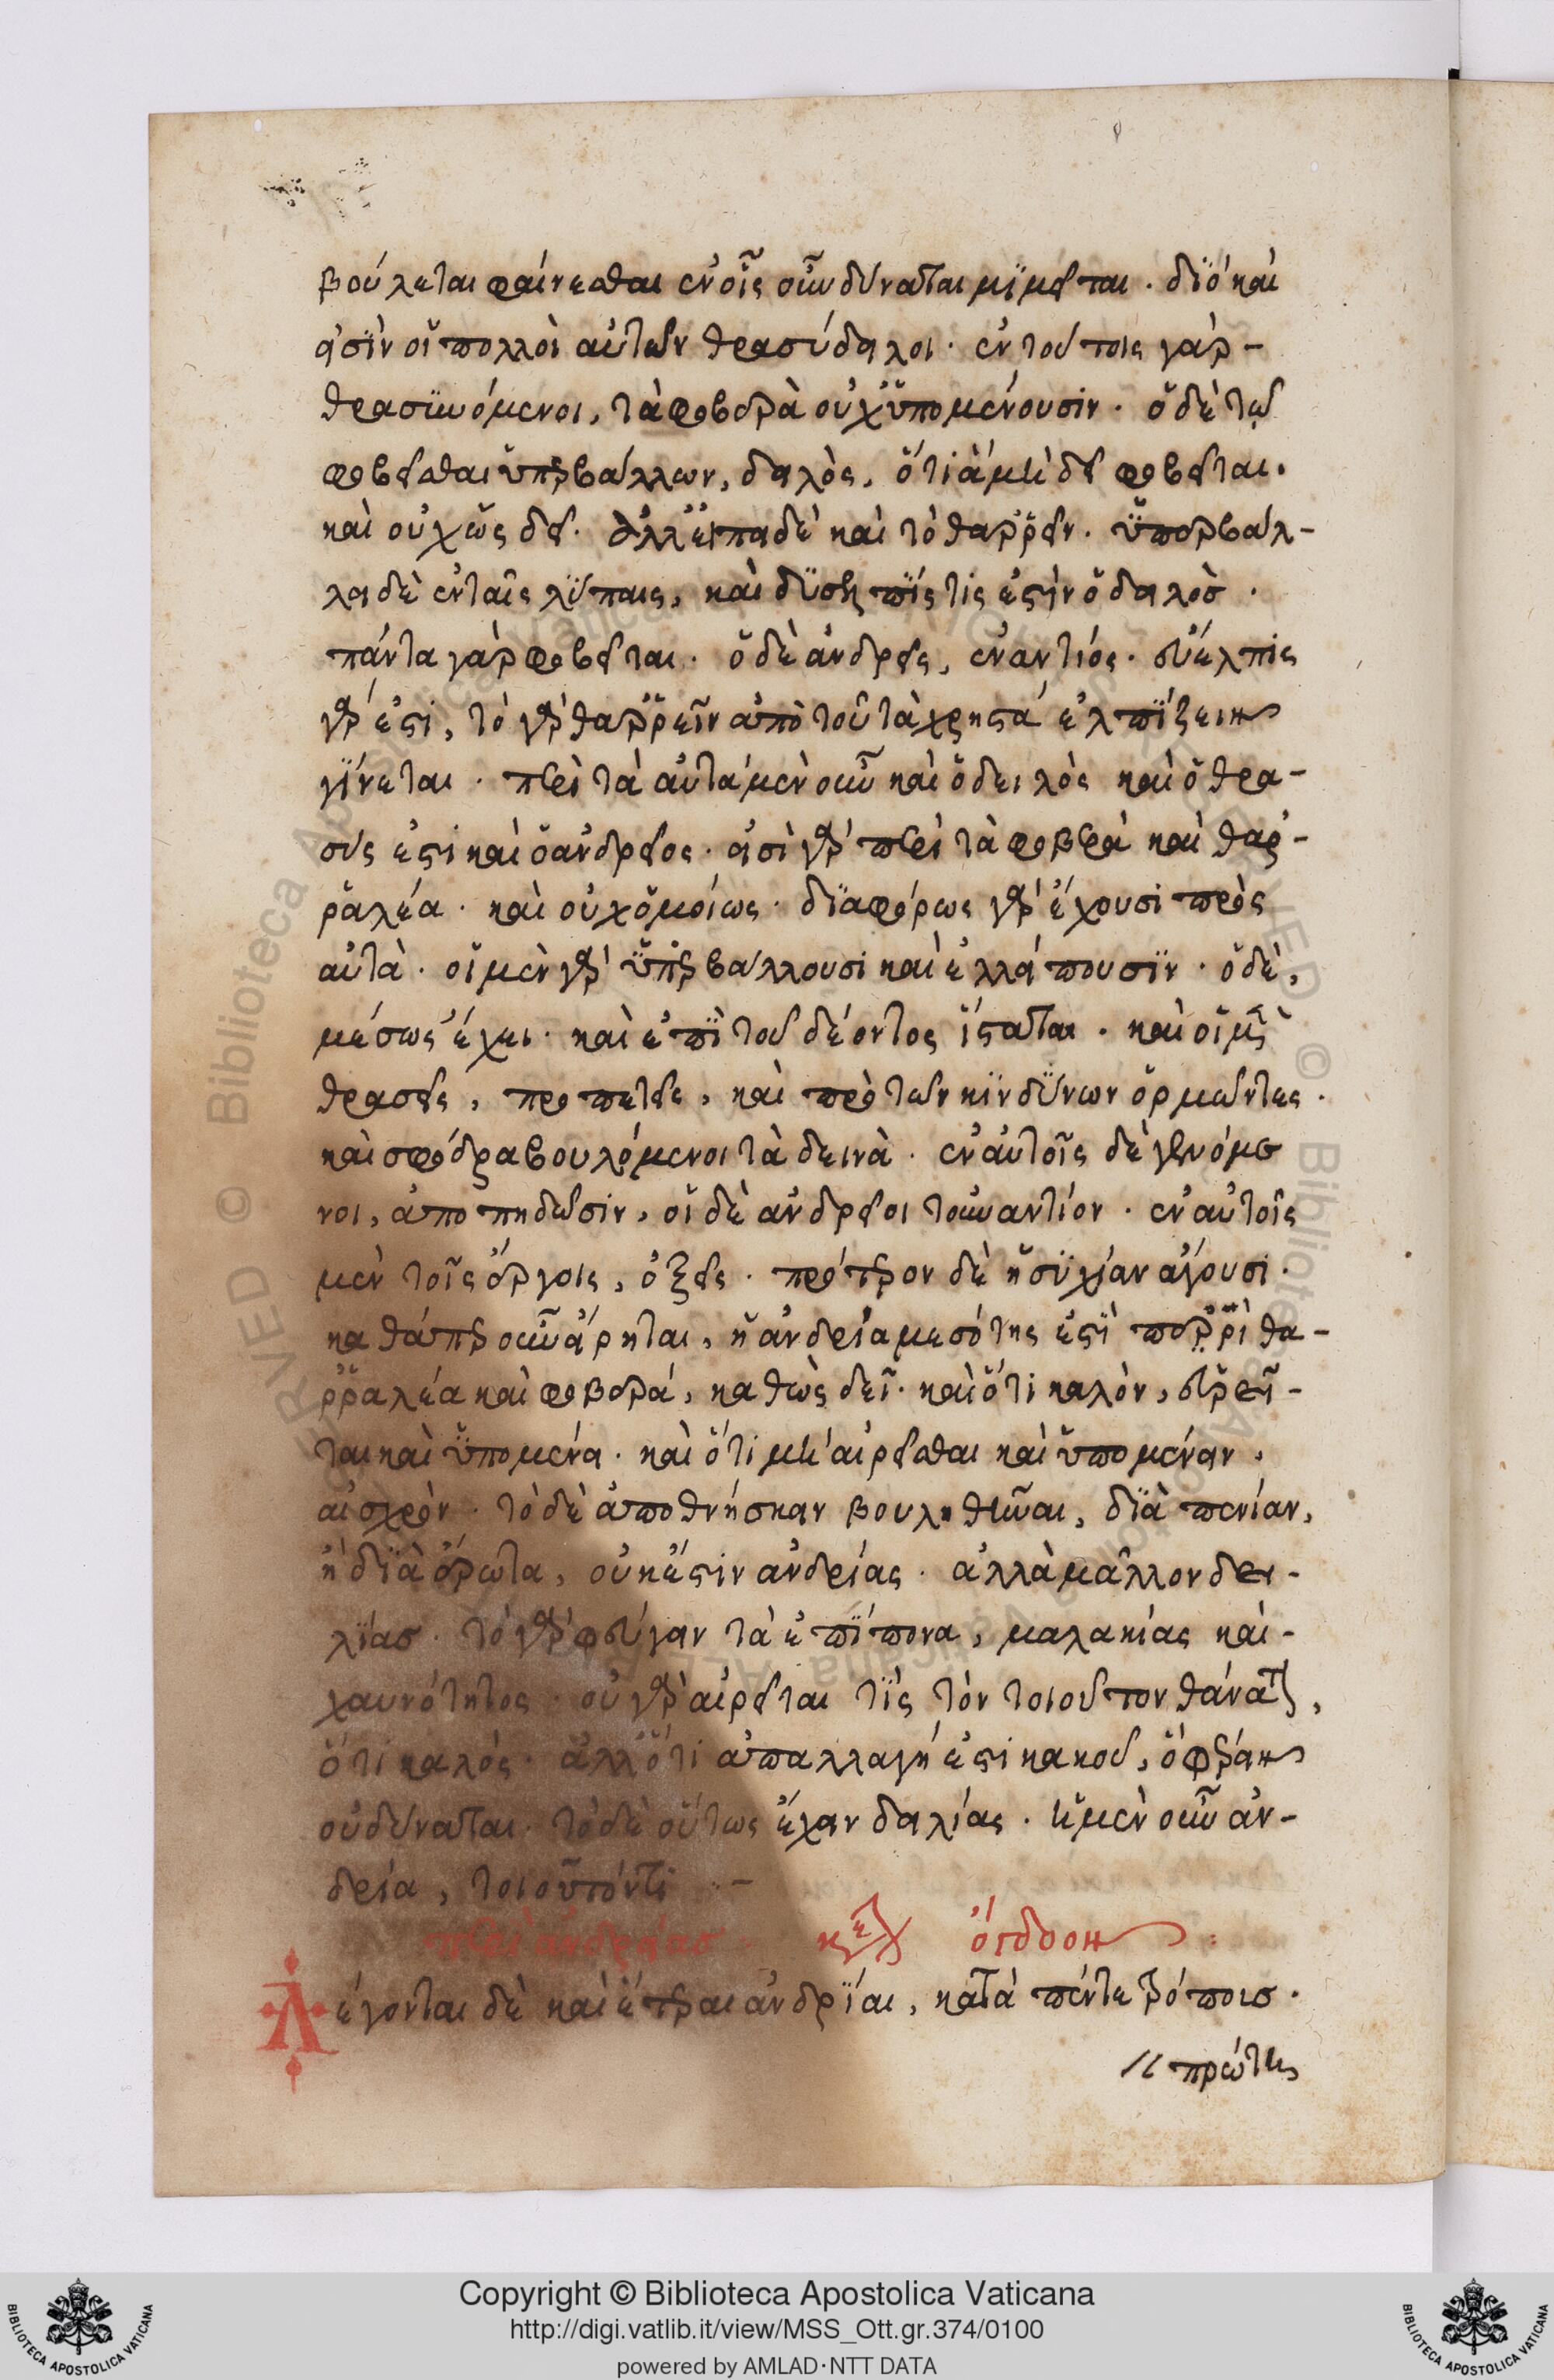 βούλεται φαίνεσθαι ἐν οἷς οὖν δύναται μϊμεῖται · δϊό καὶ
εἰσὶν οἱ πολλοὶ αὐτῶν θρασύδειλοι · ἐν τούτοις γὰρ -
θρασϋνόμενοι, τὰ φοβερὰ οὐχ ὑπομένουσιν · ὁ δὲ τῷ
φοβεῖσθαι ὑπερβάλλων, δειλὸς, ὅτι ἃ μὴ δεῖ φοβεῖται ·
καὶ οὐχ ὡς δεῖ · ἀλλείπει δὲ καὶ τὸ θαρρεῖν · ὑπερβάλ -
λει δὲ ἐν ταῖς λύπαις, καὶ δύσελπίς τίς ἐστὶν ὁ δειλὸσ ·
πάντα γὰρ φοβεῖται · ὁ δὲ ἀνδρεῖς, ἐναντιός · εὔελπις
γάρ ἐστι, τὸ γὰρ θαρρεῖν ἀπὸ τοῦ τὰ χρηστά ἐλπΐζειν
γΐνεται · περὶ τὰ αὐτά μὲν οὖν καὶ ὁ δειλὸς καὶ ὁ θρα -
σύς ἐστι καὶ ὁ ἀνδρεῖος · εἰσὶ γὰρ περὶ τὰ φοβερὰ καὶ θαρ -
ραλέα · καὶ οὐχ ὁμοίως · δϊαφόρως γὰρ ἔχουσι πρὸς
αὐτὰ · οἱ μὲν γὰρ ὑπερβάλλουσι καὶ ἐλλείπουσϊν · ὁ δὲ,
μέσως ἔχει · καὶ ἐπῒ τοῦ δέοντος ἵσταται · καὶ οἱ μὲν
θρασεῖς, προπετεῖς, καὶ πρὸ τῶν κϊνδύνων ὁρμῶντες ·
καὶ σφόδρα βουλόμενοι τὰ δεινὰ · ἐν αὐτοῖς δὲ γενόμε
νοι, ἀποπηδῶσιν, οἱ δὲ ἀνδρεῖοι τοὐναντίον · ἐν αὐτοῖς
μὲν τοῖς ἔργοις, ὀξεῖς · πρότερον δὲ ἡσυχίαν ἄγουσι ·
καθάπερ οὖν εἴρηται, ἡ ἀνδρεία μεσότης ἐστῒ περρὶ θα -
ρραλέα καὶ φοβερά, καθὼς δεῖ · καὶ ὅτι καλὸν, αἱρεῖ -
ται καὶ ὑπομένει · καὶ ὅτι μὴ αἱρεῖσθαι καὶ ὑπομένειν,
αἰσχρὸν · τὸ δὲ ἀποθνήσκειν βουληθῆναι, δϊὰ πενίαν,
ἢ δϊὰ ἔρωτα, οὐκ ἔστιν ἀνδρείας · ἀλλὰ μᾶλλον δει -
λΐασ · τὸ γὰρ φεύγειν τὰ ἐπΐπονα, μαλακίας καὶ -
χαυνότητος · οὐ γὰρ αἱρεῖται τῒς τὸν τοιοῦτον θάνατον,
ὅτι καλὸς · ἀλλ ὅτι ἀπαλλαγή ἐστι κακοῦ, ὁ φέρειν
οὐ δύναται · τὸ δὲ οὕτως ἔχειν δειλίας · ἡ μὲν οὖν ἀν -
δρεία, τοιοῦτόν τι · -
περὶ ἀνδρείασ · κεφ ὄγδοον :
Λέγονται δὲ καὶ ἕτεραι ἀνδρΐαι, κατὰ πέντε τρόποισ ·
ἡ πρώτη
Copyright © Biblioteca Apostolica Vaticana
http://digi.vatlib.it/view/MSS_Ott.gr.374/0100
powered by AMLAD·NTT DATA
BIBLIOTECA APOSTOLICA VATICANA
BIBLIOTECA APOSTOLICA VATICANA